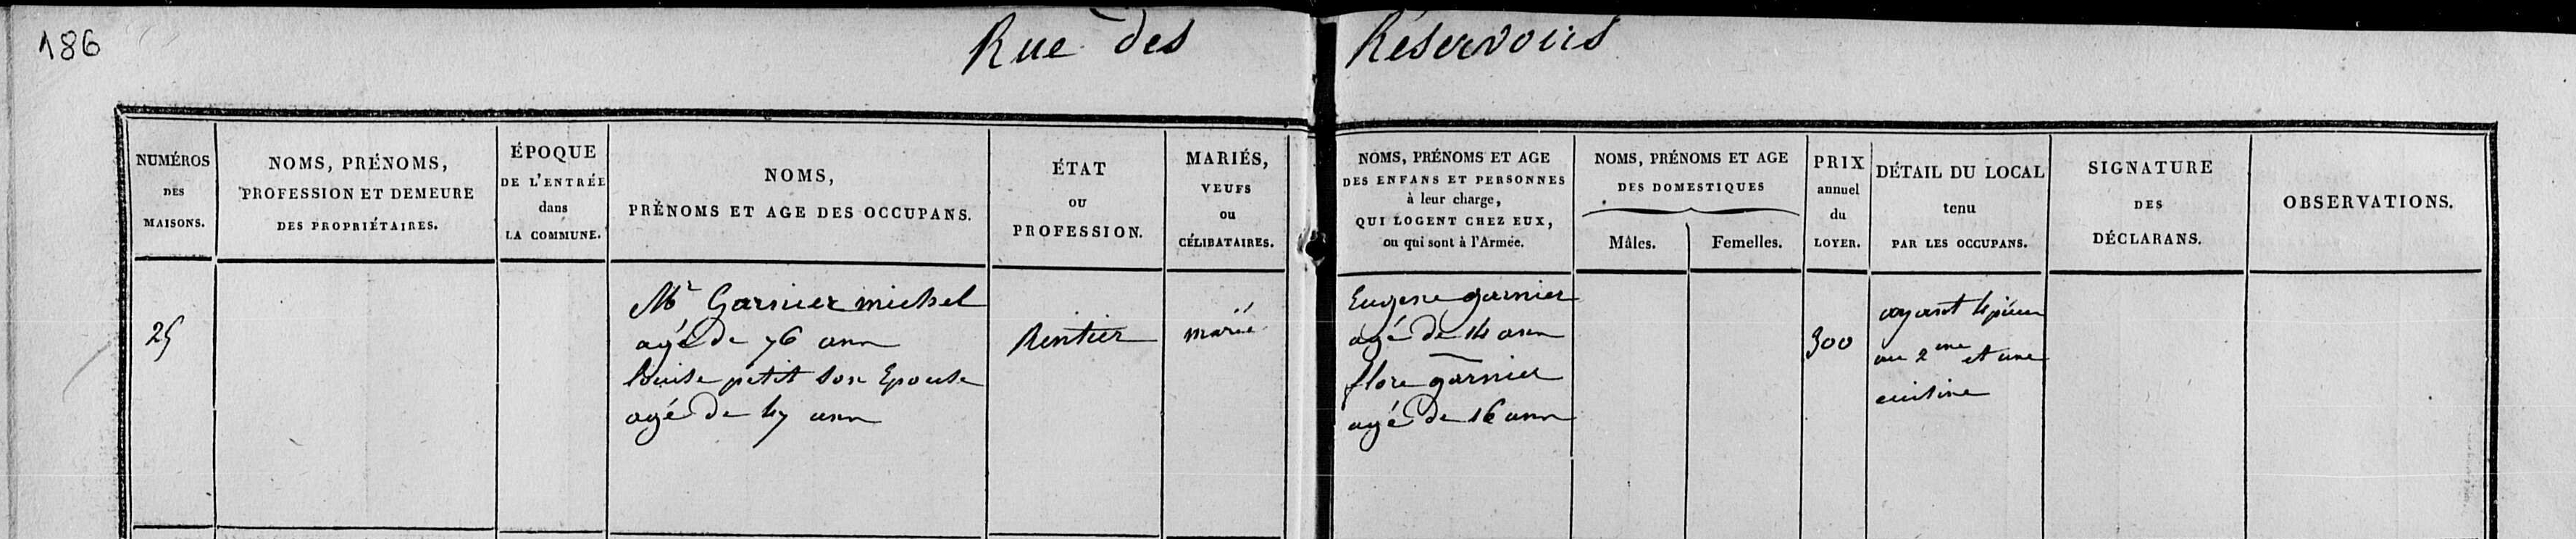 186
Rue des Réservoirs
NUMÉROS
DES
MAISONS.
NOMS, PRÉNOMS,
PROFESSION ET DEMEURE
DES PROPRIÉTAIRES.
ÉPOQUE
DE L'ENTRÉE
dans
LA COMMUNE.
NOMS,
PRÉNOMS ET AGE DES OCCUPANS.
ÉTAT
OU
PROFESSION.
MARIÉS,
VEUFS
ou
CÉLIBATAIRES.
NOMS, PRÉNOMS ET AGE
DES ENFANS ET PERSONNES
à leur charge,
QUI LOGENT CHEZ EUX,
ou qui sont à l'Armée.
NOMS, PRÉNOMS ET AGE
DES DOMESTIQUES
Mâles.
Femelles.
PRIX
annuel
du
LOYER.
DÉTAIL DU LOCAL
tenu
PAR LES OCCUPANS.
SIGNATURE
DES
DÉCLARANS.
OBSERVATIONS.
25
Mr Garnier michel
agé de 76 ans
louise petit son Epouse
agé de 47 ans
Rentier
marié
Eugene garnier
agé de 14 ans
flore garnier
agé de 16 ans
300
ayant 4 pièces
au 2me et une
cuisine